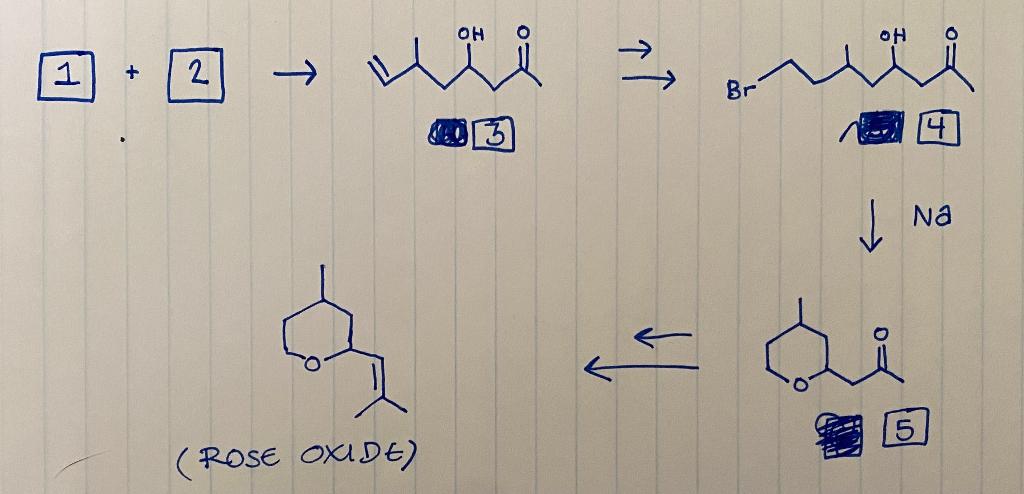 1 + 2 → OH O → → OH O
Br
3
4
↓ Na
O
O
← ←
O
5
(ROSE OXIDE)